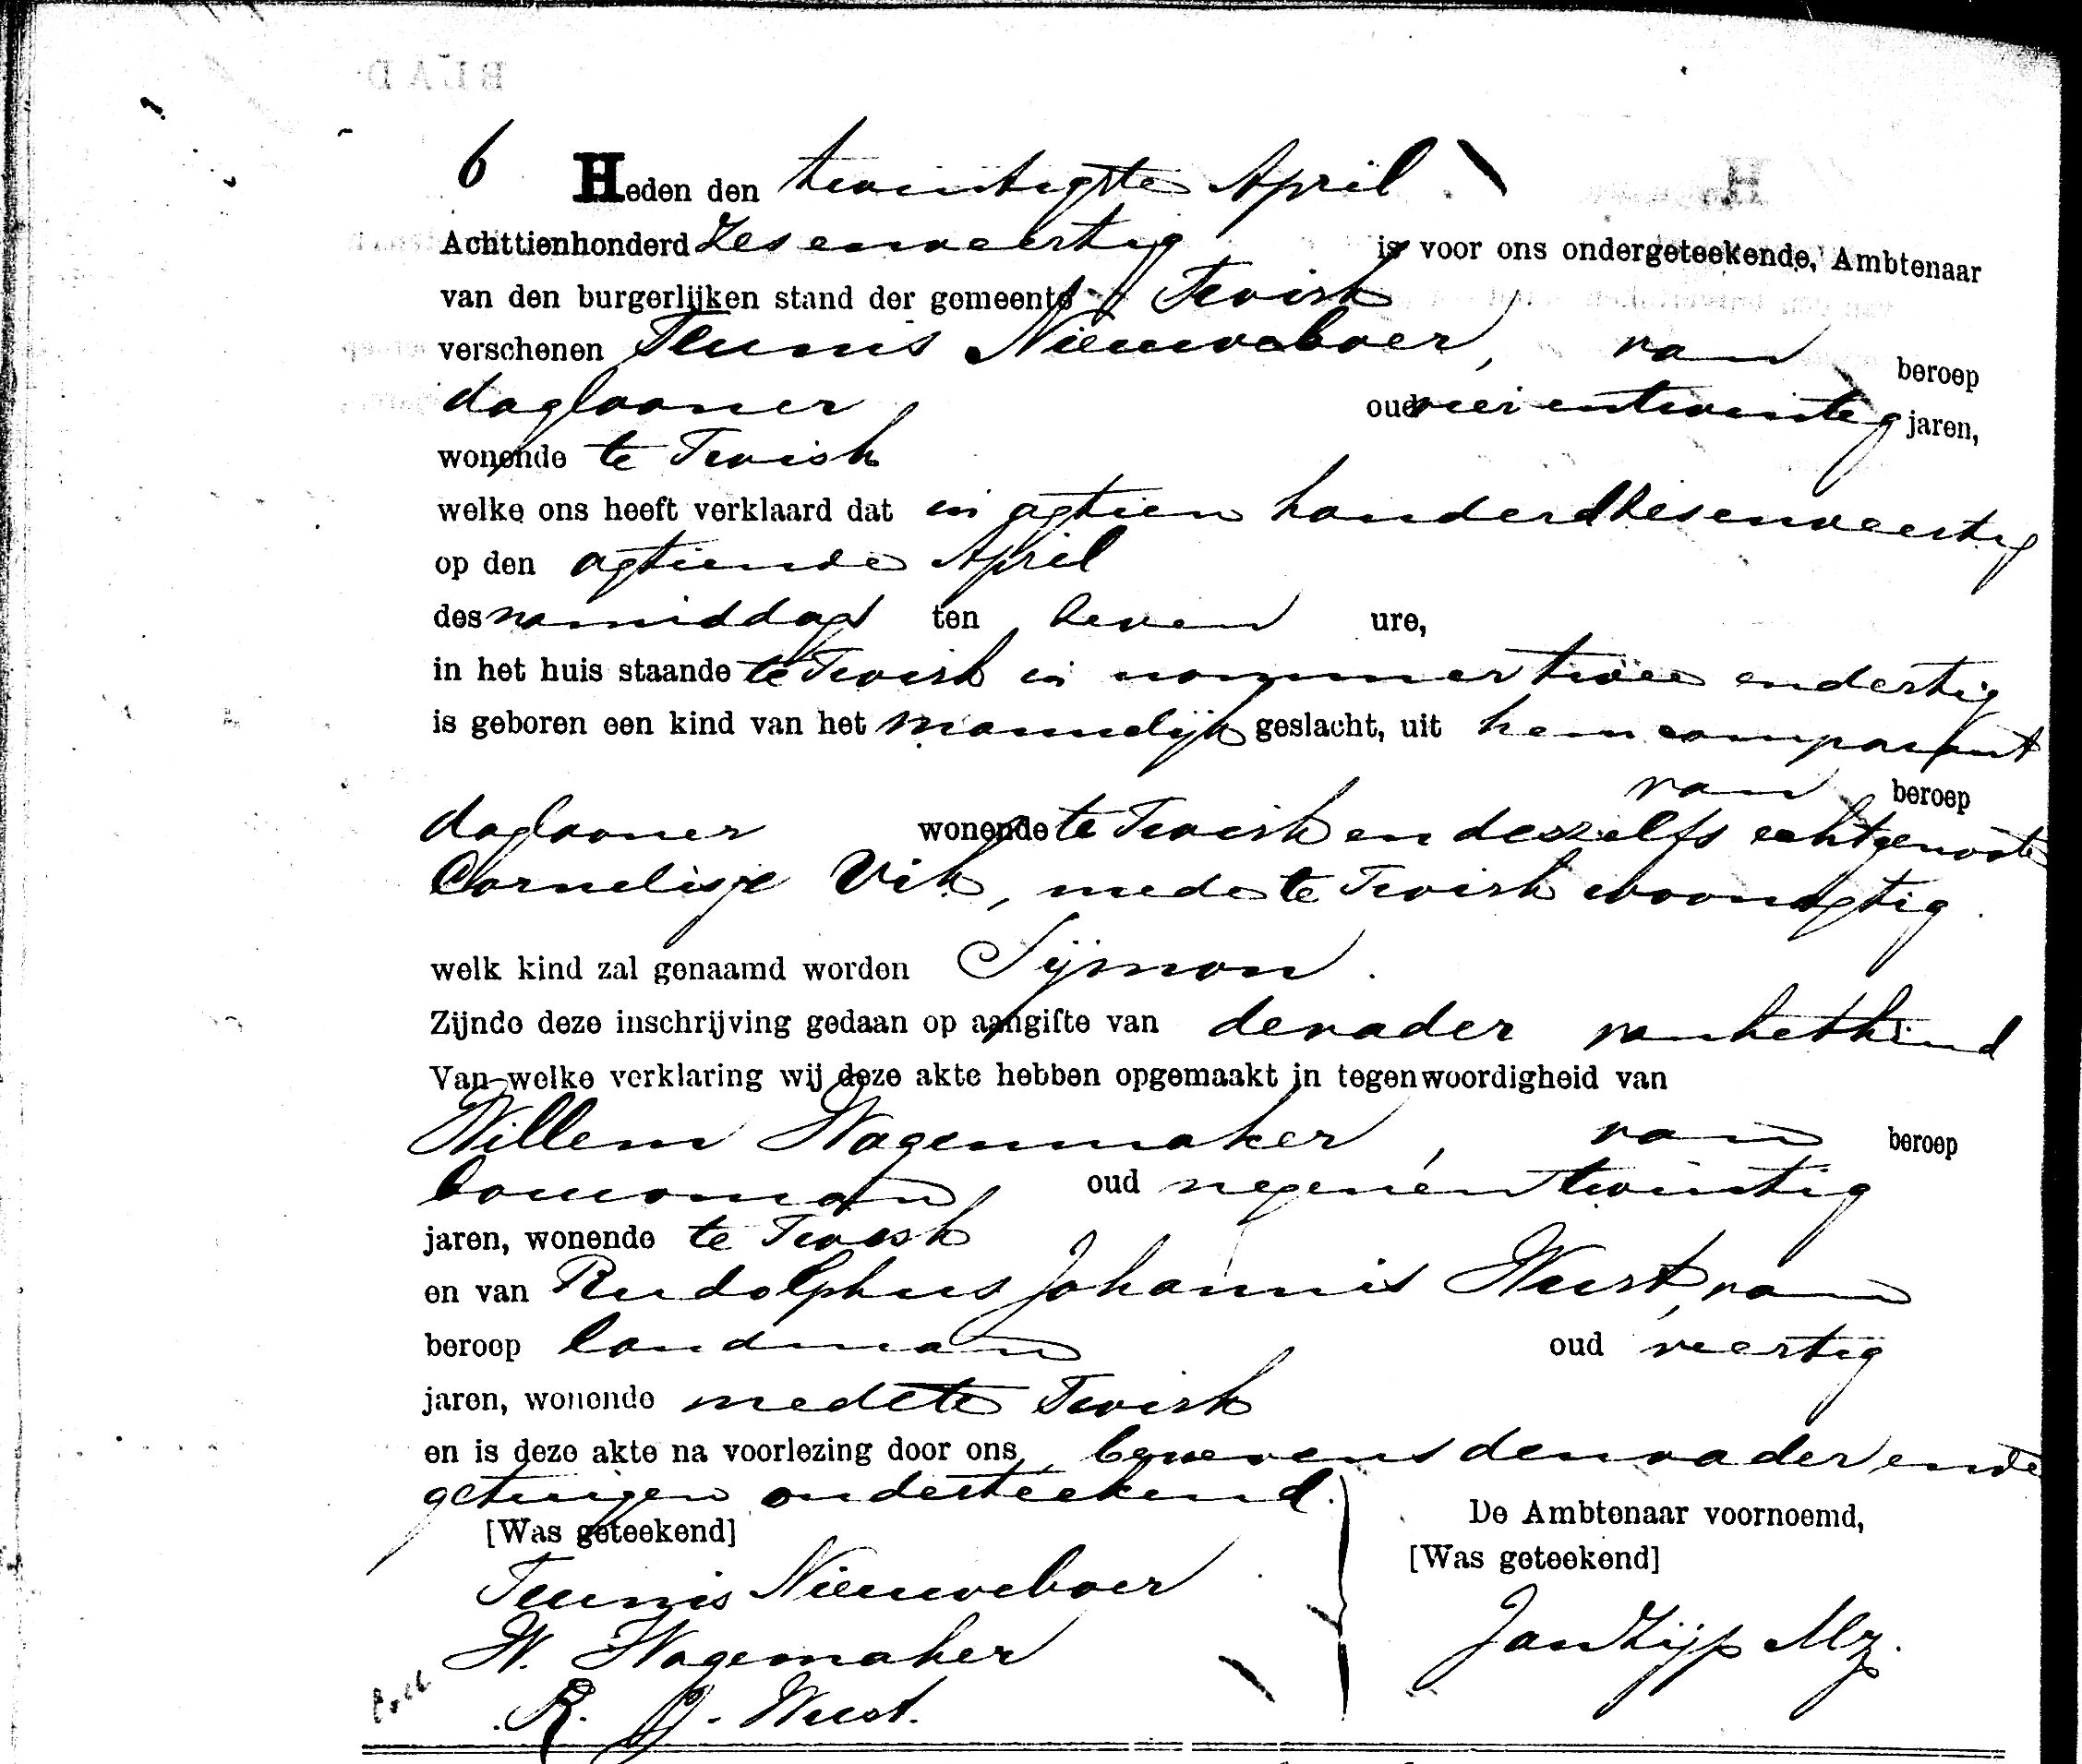 6 Heden den twintigste April
Achttienhonderd Zesenveertig is voor ons ondergeteekende, Ambtenaar
van den burgerlijken stand der gemeente Twisk
verschenen Teunis Nieuweboer, van beroep
daglooner oud vierentwintig jaren,
wonende te Twisk
welke ons heeft verklaard dat in agtien honderd zesenveertig
op den agtiende April
des namiddags ten zeven ure,
in het huis staande te Twisk in nommer twëe endertig
is geboren een kind van het mannelijk geslacht, uit hem comparant
van beroep
daglooner wonende te Twisk en deszelfs echtgenoote
Cornelisje Vik, mede te Twisk woonagtig
welk kind zal genaamd worden Sijmon.
Zijnde deze inschrijving gedaan op aangifte van de vader van het kind
Van welke verklaring wij deze akte hebben opgemaakt in tegenwoordigheid van
Willem Wagenmaker, van beroep
bouwman oud negenentwintig
jaren, wonende te Twisk
en van Rudolphus Johannis Wust, van
beroep landman oud veertig
jaren, wonende mede te Twisk
en is deze akte na voorlezing door ons, benevens den vader en de
getuigen onderteekend.
[Was geteekend]
De Ambtenaar voornoemd,
[Was geteekend]
Teunis Nieuweboer
W. Wagemaker
R. J. Wust.
Jan Zijp Mz.